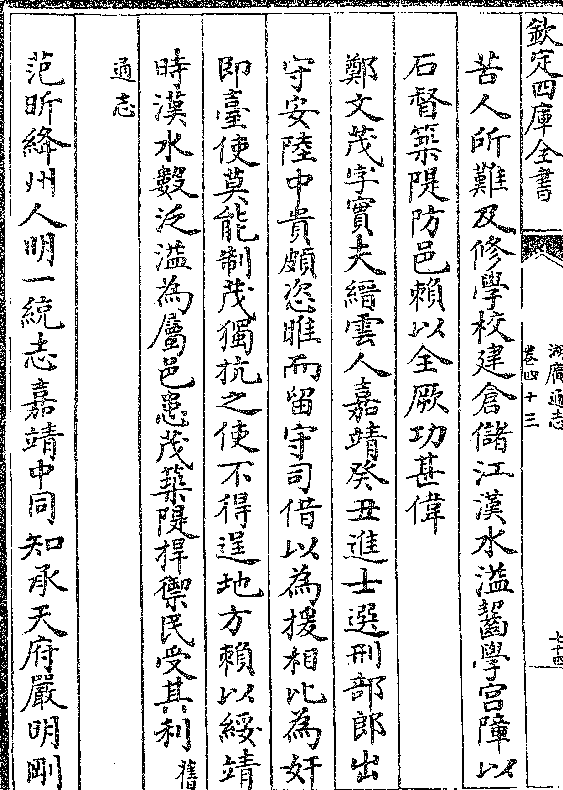 欽定四庫全書
湖廣通志
卷四十三
七十四
苦人所難及修學校建倉儲江漢水溢齧學宮障以
石督築隄防邑賴以全厥功甚偉
鄭文茂字實夫縉雲人嘉靖癸丑進士選刑部郎出
守安陸中貴頗恣睢而留守司借以為援相比為奸
即臺使莫能制茂獨抗之使不得逞地方賴以綏靖
時漢水數泛溢為屬邑患茂築隄捍禦民受其利舊
通志
范昕絳州人明一統志嘉靖中同知承天府嚴明剛